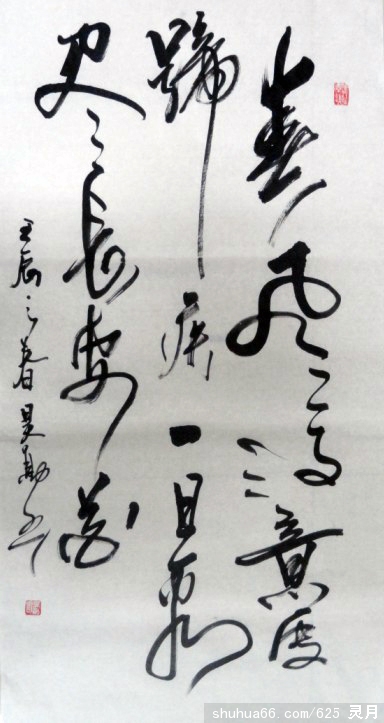 春风得意马
蹄疾一日看
尽长安花
壬辰之春
shuhua66.com/625 灵月